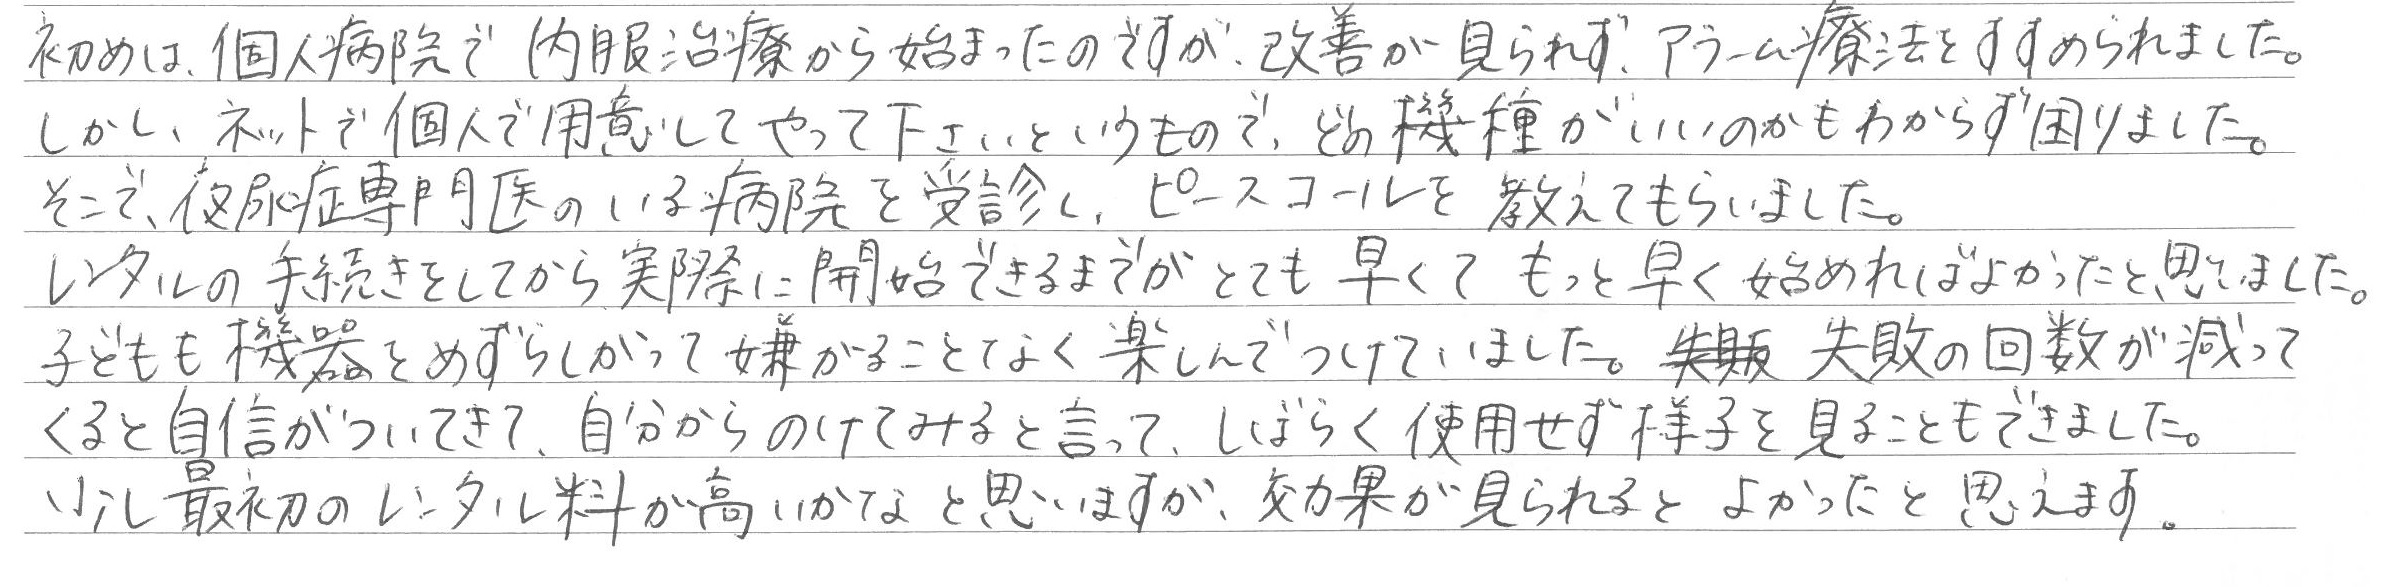 初めは、個人病院で内服治療から始まったのですが、改善が見られず、アラーム療法をすすめられました。
しかし、ネットで個人で用意してやって下さいというもので、どの機種がいいのかもわからず困りました。
そこで、夜尿症専門医のいる病院を受診し、ピースコールを教えてもらいました。
レンタルの手続きをしてから実際に開始できるまでがとても早くてもっと早く始めればよかったと思いました。
子どもも機器をめずらしがって嫌がることなく楽しんでつけていました。失敗の回数が減って
くると自信がついてきて、自分からのけてみると言って、しばらく使用せず様子を見ることもできました。
少し最初のレンタル料が高いかなと思いますが、効果が見られるとよかったと思えます。